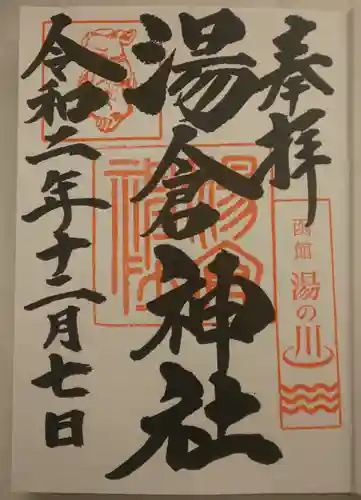 奉拝
函館
湯の川
湯倉神社
湯倉神社
令和二年十二月七日